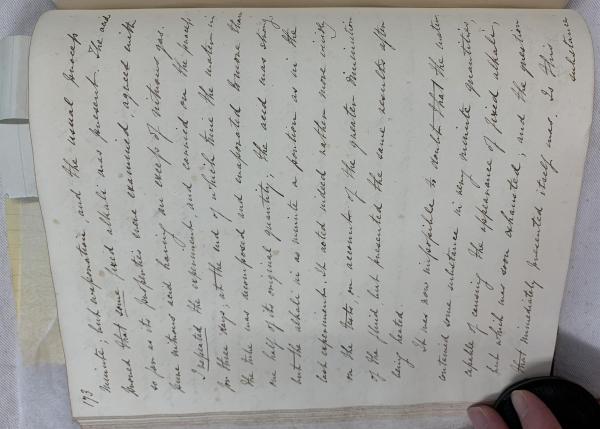 173
minute; but evaporation, and the usual process
proved that some fixed alkali was present. The acid
so far as its properties were examined agreed with
pure nitrous acid having an excess of nitrous gas.
I repeated the experiment, and carried on the process
for three days; at the end of which time the water in
the tube was decomposed and evaporated to more than
one half of its original quantity; the acid was strong,
but the alkali in as minute a portion as in the
last experiment. It acted indeed rather more vividly
on the tests, on account of the greater diminution
of the fluid but presented the same results after
being heated.
It was now impossible to doubt that the water
contained some substance in very minute quantities,
capable of causing the appearance of fixed alkali,
but which was soon exhausted; and the question
that immediately presented itself was. Is this
substance